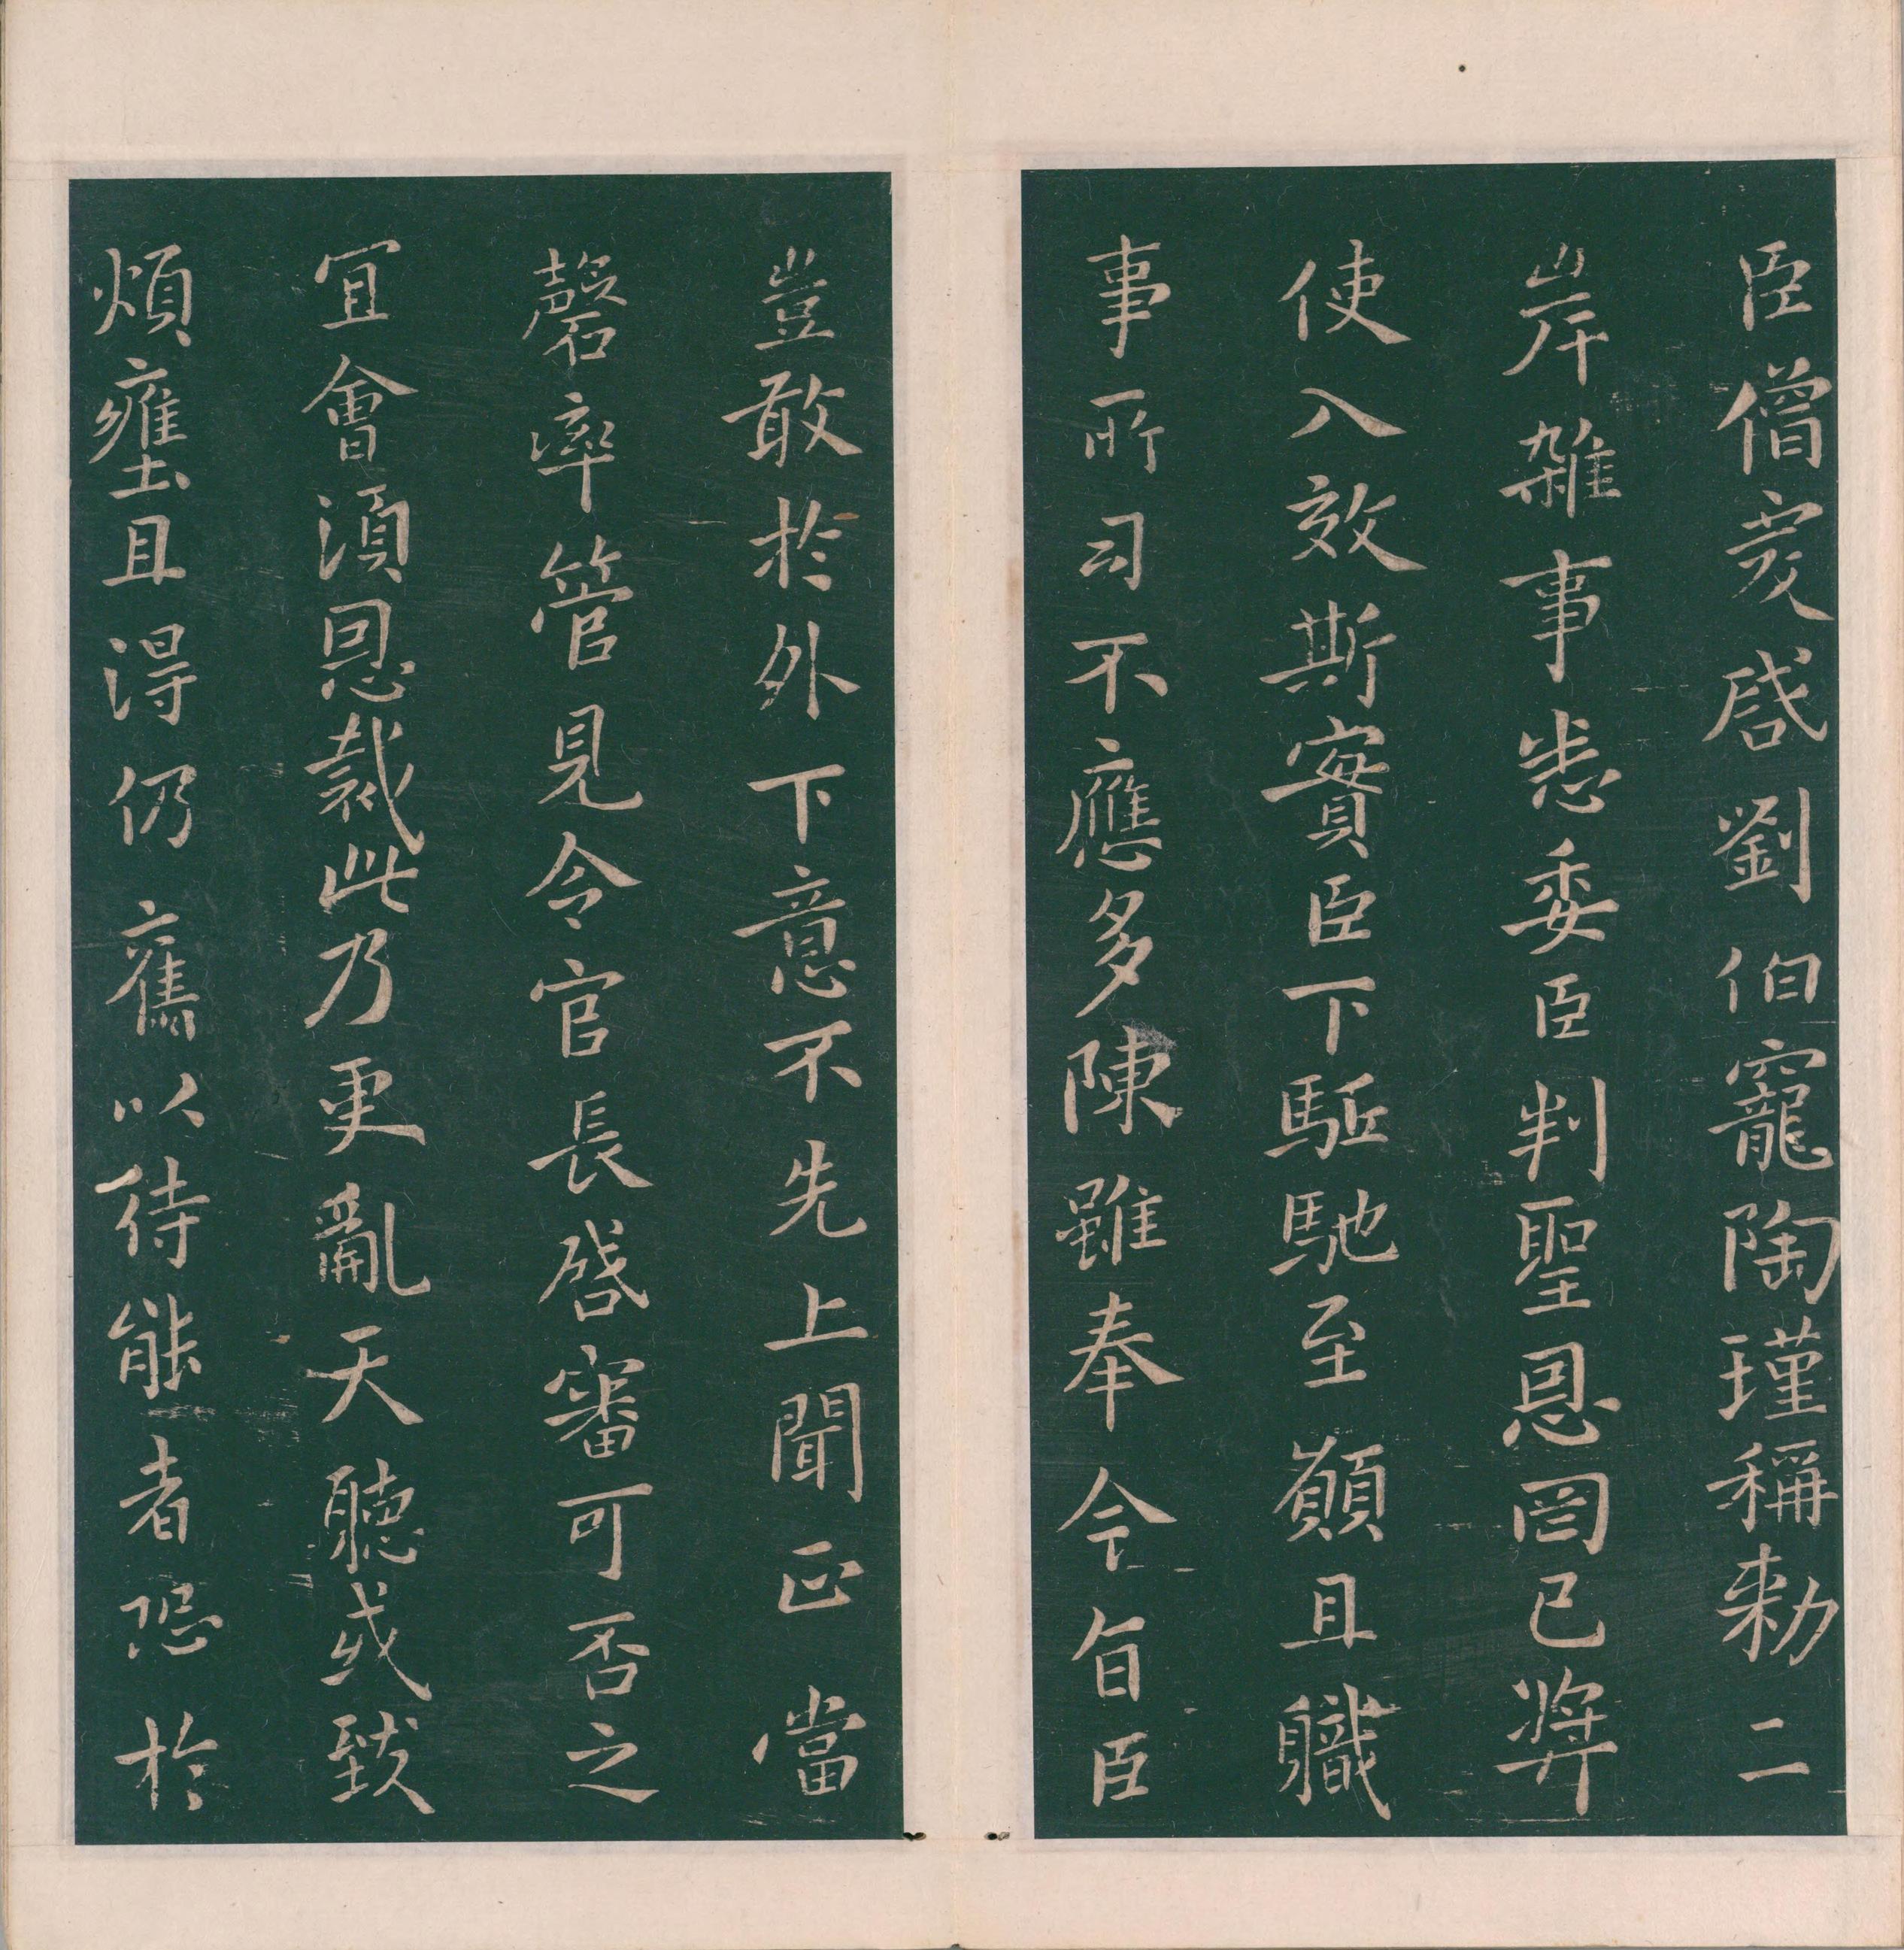 臣僧虔啓劉伯寵陶瑾稱勑二
岸雜事悉委臣判聖恩罔已奬
使入效斯實臣下駈馳至願且職
事所司不應多陳雖奉令旨臣
豈敢於外下意不先上聞正當
罄率管見令官長啓審可否之
宜會須恩裁此乃更亂天聽或致
煩壅且得仍舊以待能者恐於